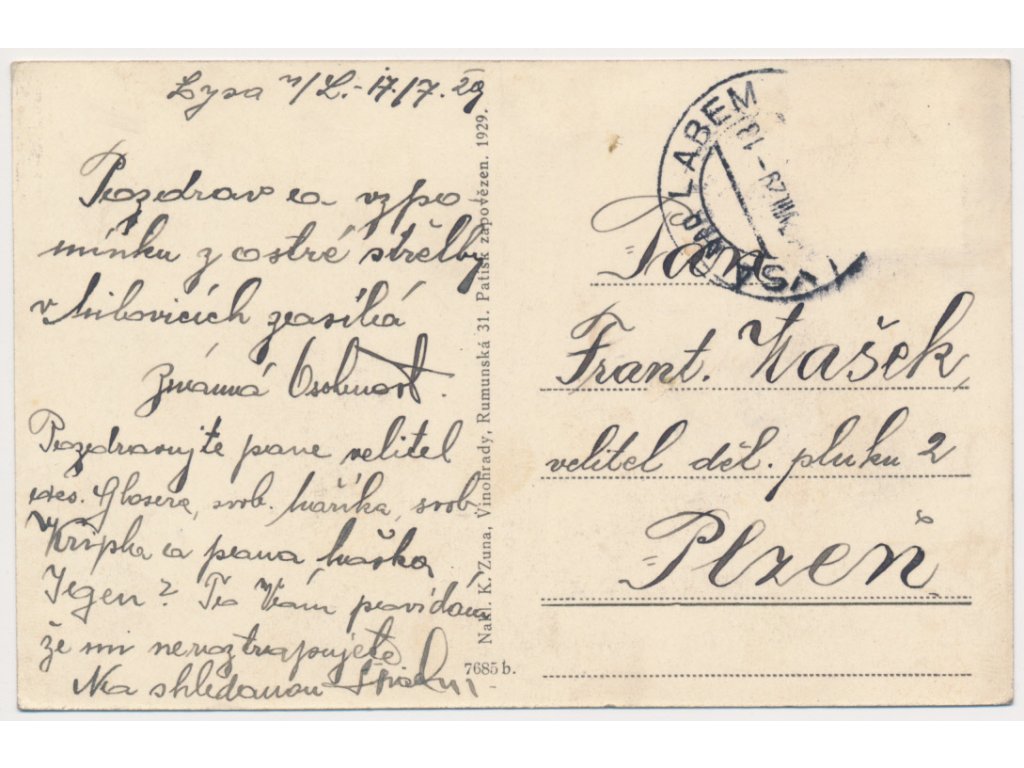 Lysa n/L.-17/7.29
Pozdrav a vzpo
mínku z ostré střelby
v Milovicích zasílá
Známá Osobnost.
Pozdravujte pane velitel
Glosera, svob. Maříka, svob
Křipla a pana Maška
Jegen? To Vám povídám
že mi neroztrapujete
Na shledanou
Nakl. K. Zuna, Vinohrady, Rumunská 31. Patisk zapovězen. 1929.
7685 b.
LABEM
VIII 29 - 13
LYSÁ NAD
Pan
Frant. Wašek,
velitel děl. pluku 2
Plzeň,